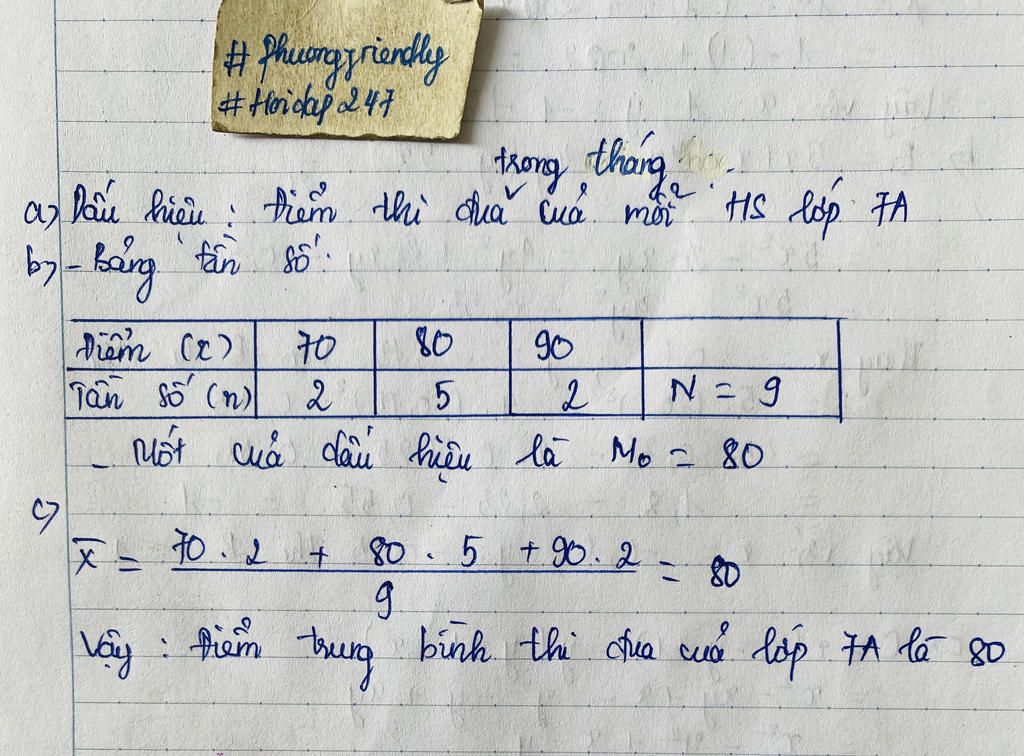 # Phuongfriendly
# Hoidap247
trong tháng
a) Dấu hiệu : Điểm thi đua của mỗi HS lớp 7A
b) - Bảng tần số:
Điểm (x) 70 80 90
Tần số (n) 2 5 2 N = 9
- Mốt của dấu hiệu là M₀ = 80
c)
X̄ = (70 . 2 + 80 . 5 + 90 . 2) / 9 = 80
Vậy : Điểm trung bình thi đua của lớp 7A là 80